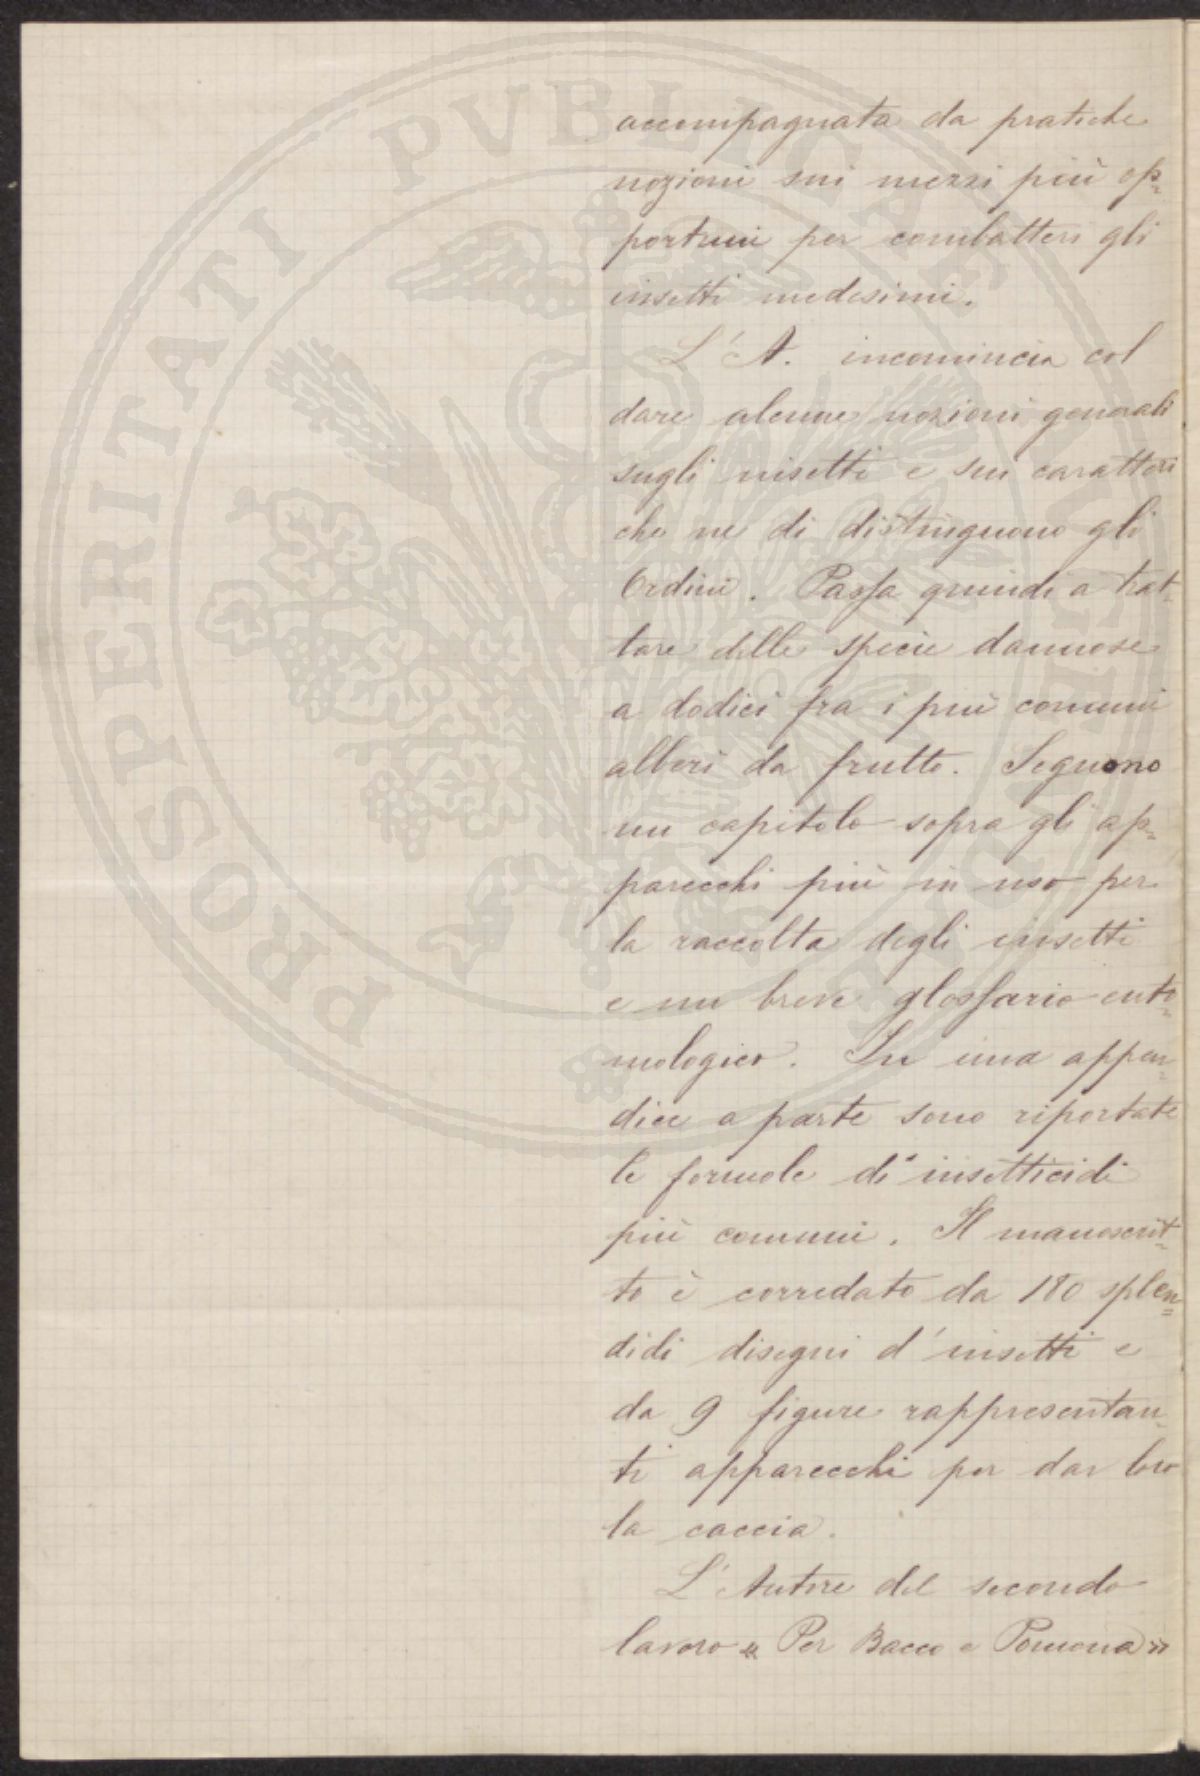 accompagnata da pratiche
nozioni sui mezzi più op=
portuni per combattere gli
insetti medesimi.
L'A. incomincia col
dare alcune nozioni generali
sugli insetti e sui caratteri
che ne di distinguono gli
Ordini. Passa quindi a trat-
tare delle specie dannose
a dodici fra i più comuni
alberi da frutto. Seguono
un capitolo sopra gli ap=
parecchi più in uso per
la raccolta degli insetti
e un breve glossario ento=
mologico. In una appen=
dice a parte sono riportate
le formole di insetticidi
più comuni. Il manoscrit=
to è corredato da 180 splen=
didi disegni d'insetti e
da 9 figure rappresentan=
ti apparecchi per dar loro
la caccia.
L'Autore del secondo
lavoro « Per Bacco e Pomona »
PROSPERITATI PVBLICAE